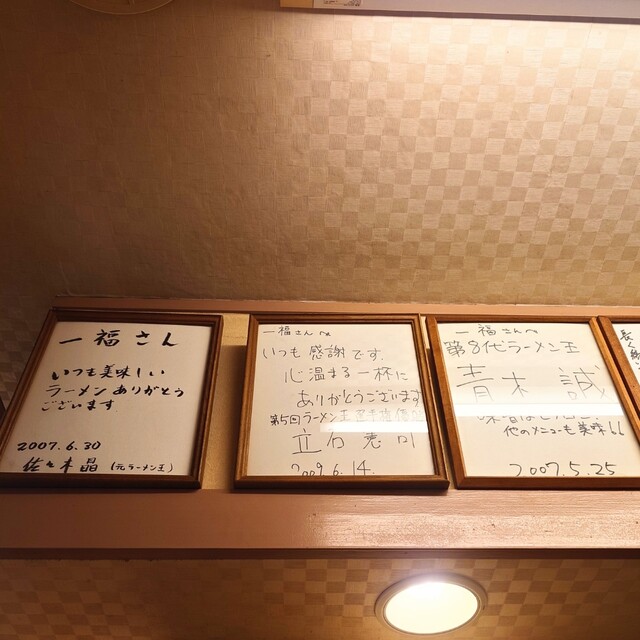 一福さん
いつも美味しい
ラーメンありがとう
ございます
2007.6.30
佐々木晶 (元ラーメン王)
一福さんへ
いつも感謝です。
心温まる一杯に
ありがとうございます
第5回ラーメン王
立石憲司
2009.6.14.
一福さんへ
第8代ラーメン王
青木誠
他のメニューも美味
2007.5.25